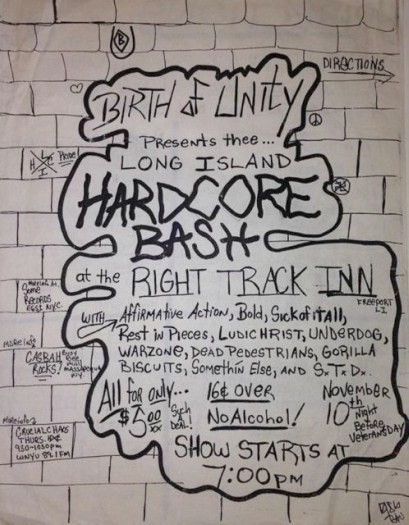 B
DIRECTIONS
BIRTH of UNITY
Presents thee...
LONG ISLAND
HARDCORE
BASH
at the RIGHT TRACK INN
FREEPORT
LI
WITH Affirmative Action, Bold, Sick of it All,
Rest in Pieces, LUDICHRIST, UNDERDOG,
WARZONE, DEAD PEDESTRIANS, GORILLA
BISCUITS, Somethin Else, AND S.T.D.
All for only...
$5.00
Such a
Deal!
16 & OVER
No Alcohol!
November
10th Night
Before
Veterans DAY
SHOW STARTS AT
7:00pm
L
H
I
More info
Some
RECORDS
NYC.
More info
CASBAH
Rocks!
NY
More info
CRUCIAL CHAOS
THURS.
9:30-10:30pm
WNYU 89.1 FM